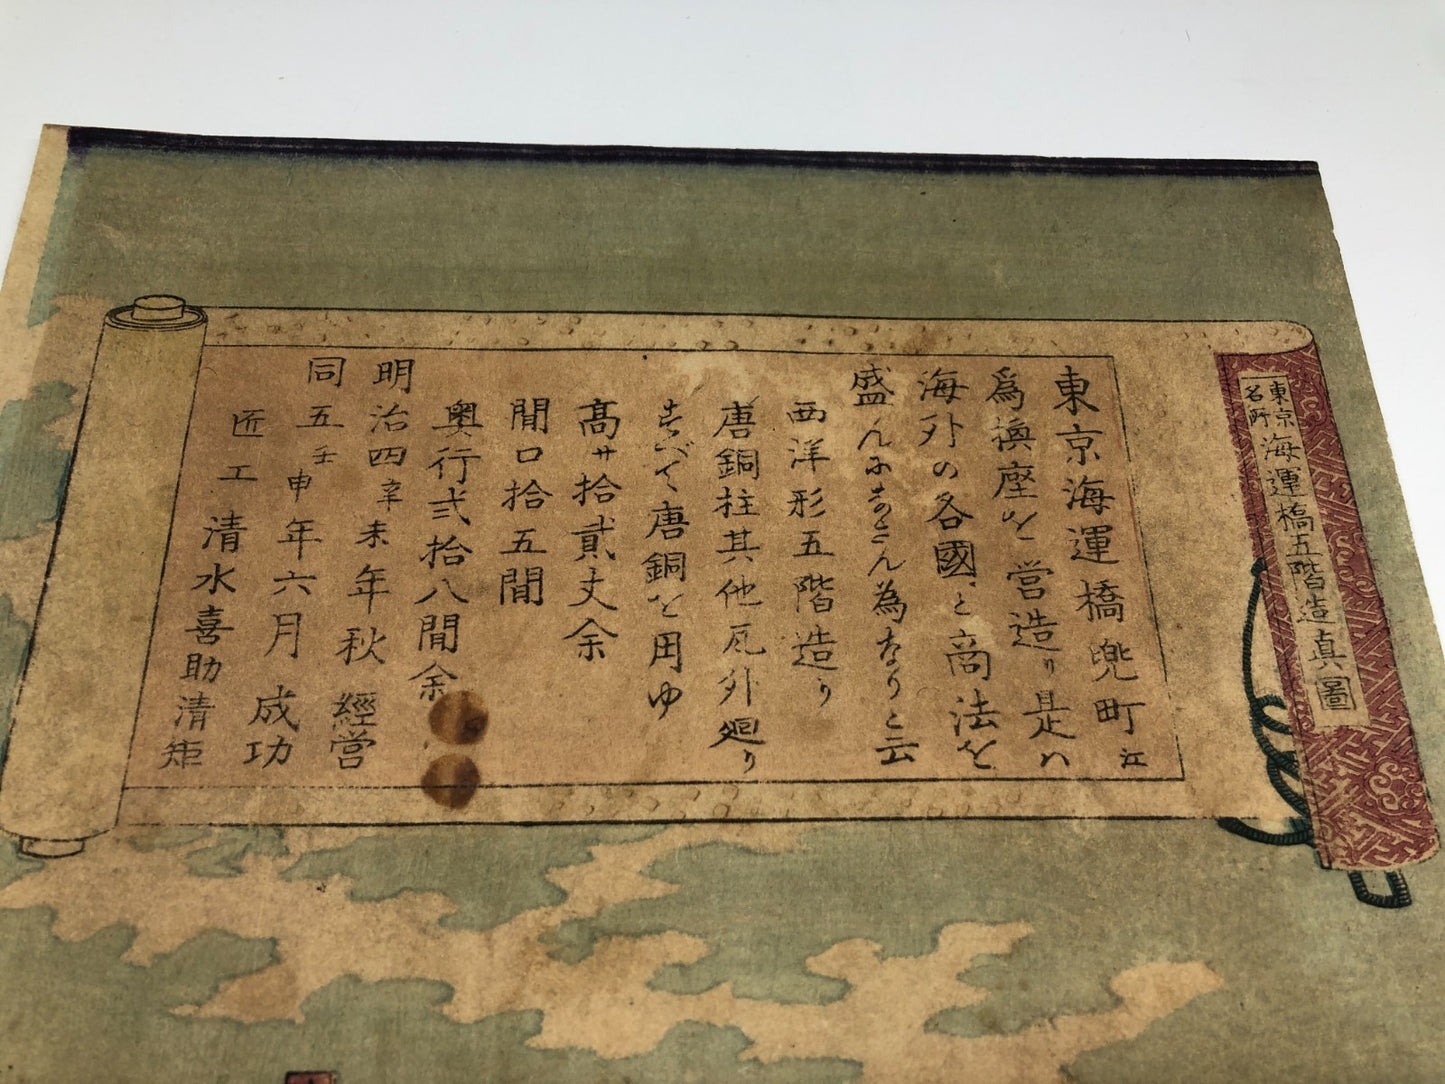 東京名所
海運橋五階造真圖
東京海運橋兜町江
爲換座を営造り是ハ
海外の各國と商法を
盛んにまさん為なりと云
西洋形五階造り
唐銅柱其他瓦外廻り
すべて唐銅を用ゆ
高サ拾貳丈余
間口拾五間
奥行弐拾八間余
明治四辛未年秋 經営
同五壬申年六月 成功
匠工 清水喜助清矩